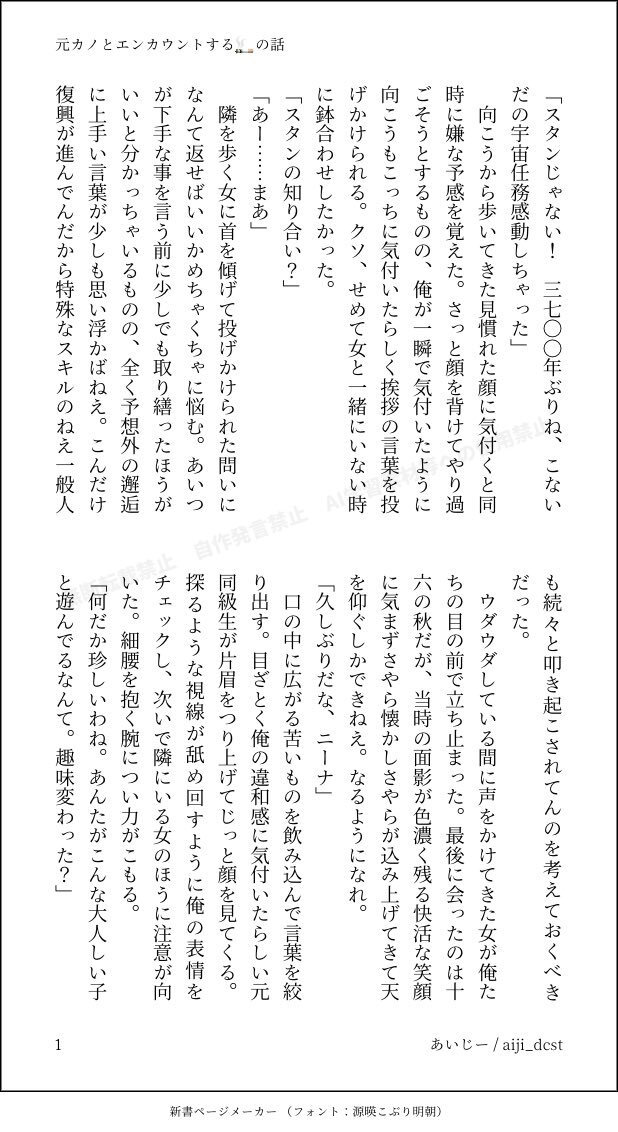 元カノとエンカウントするの話
「スタンじゃない！　三七〇〇年ぶりね、こない
だの宇宙任務感動しちゃった」
　向こうから歩いてきた見慣れた顔に気付くと同
時に嫌な予感を覚えた。さっと顔を背けてやり過
ごそうとするものの、俺が一瞬で気付いたように
向こうもこっちに気付いたらしく挨拶の言葉を投
げかけられる。クソ、せめて女と一緒にいない時
に鉢合わせしたかった。
「スタンの知り合い？」
「あー……まあ」
　隣を歩く女に首を傾げて投げかけられた問いに
なんて返せばいいかめちゃくちゃに悩む。あいつ
が下手な事を言う前に少しでも取り繕ったほうが
いいと分かっちゃいるものの、全く予想外の邂逅
に上手い言葉が少しも思い浮かばねえ。こんだけ
復興が進んでんだから特殊なスキルのねえ一般人
も続々と叩き起こされてんのを考えておくべき
だった。
　ウダウダしている間に声をかけてきた女が俺た
ちの目の前で立ち止まった。最後に会ったのは十
六の秋だが、当時の面影が色濃く残る快活な笑顔
に気まずさやら懐かしさやらが込み上げてきて天
を仰ぐしかできねえ。なるようになれ。
「久しぶりだな、ニーナ」
　口の中に広がる苦いものを飲み込んで言葉を絞
り出す。目ざとく俺の違和感に気付いたらしい元
同級生が片眉をつり上げてじっと顔を見てくる。
探るような視線が舐め回すように俺の表情を
チェックし、次いで隣にいる女のほうに注意が向
いた。細腰を抱く腕につい力がこもる。
「何だか珍しいわね。あんたがこんな大人しい子
と遊んでるなんて。趣味変わった？」
無断転載禁止　自作発言禁止
1
あいじー / aiji_dcst
新書ページメーカー（フォント：源暎こぶり明朝）